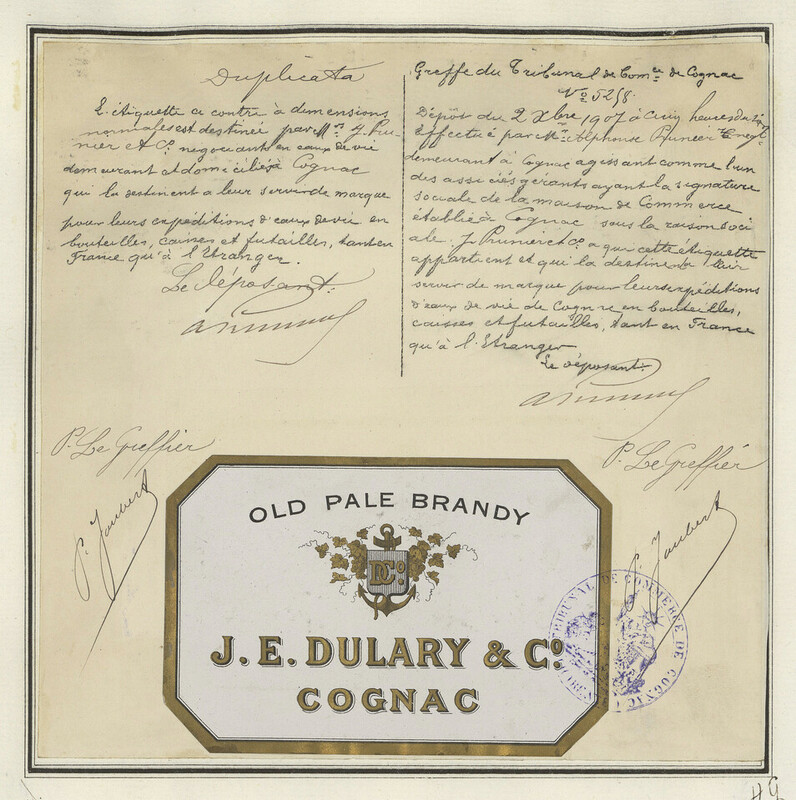 Duplicata
L'étiquette ci contre à dimensions
normales est destinée par MMrs J. Pru-
nier et Co négociants en eaux de vie
demeurant et domiciliés à Cognac
qui la destinent a leur servir de marque
pour leurs expéditions d'eaux de vie en
bouteilles, caisses et futailles, tant en
France qu'à l'Etranger.
Le déposant:
Greffe du Tribunal de Comce de Cognac
No 5258
Dépôt du 2 Xbre 1907 à Cinq heures du
Effectué par Mr Alphonse Prunier Négt
demeurant à Cognac agissant comme l'un
des associés gérants ayant la signature
sociale de la maison de Commerce
établie à Cognac sous la raison soci
ale J. Prunier et Co a qui cette étiquette
appartient et qui la destinent à leur
servir de marque pour leurs expéditions
d'eaux de vie de Cognac en bouteilles,
caisses et futailles, tant en France
qu'à l'Etranger
Le déposant:
P. Le Greffier
P. Joubert
P. Le Greffier
P. Joubert
OLD PALE BRANDY
D Co
J. E. DULARY & Co.
COGNAC
TRIBUNAL DE COMMERCE DE COGNAC
49